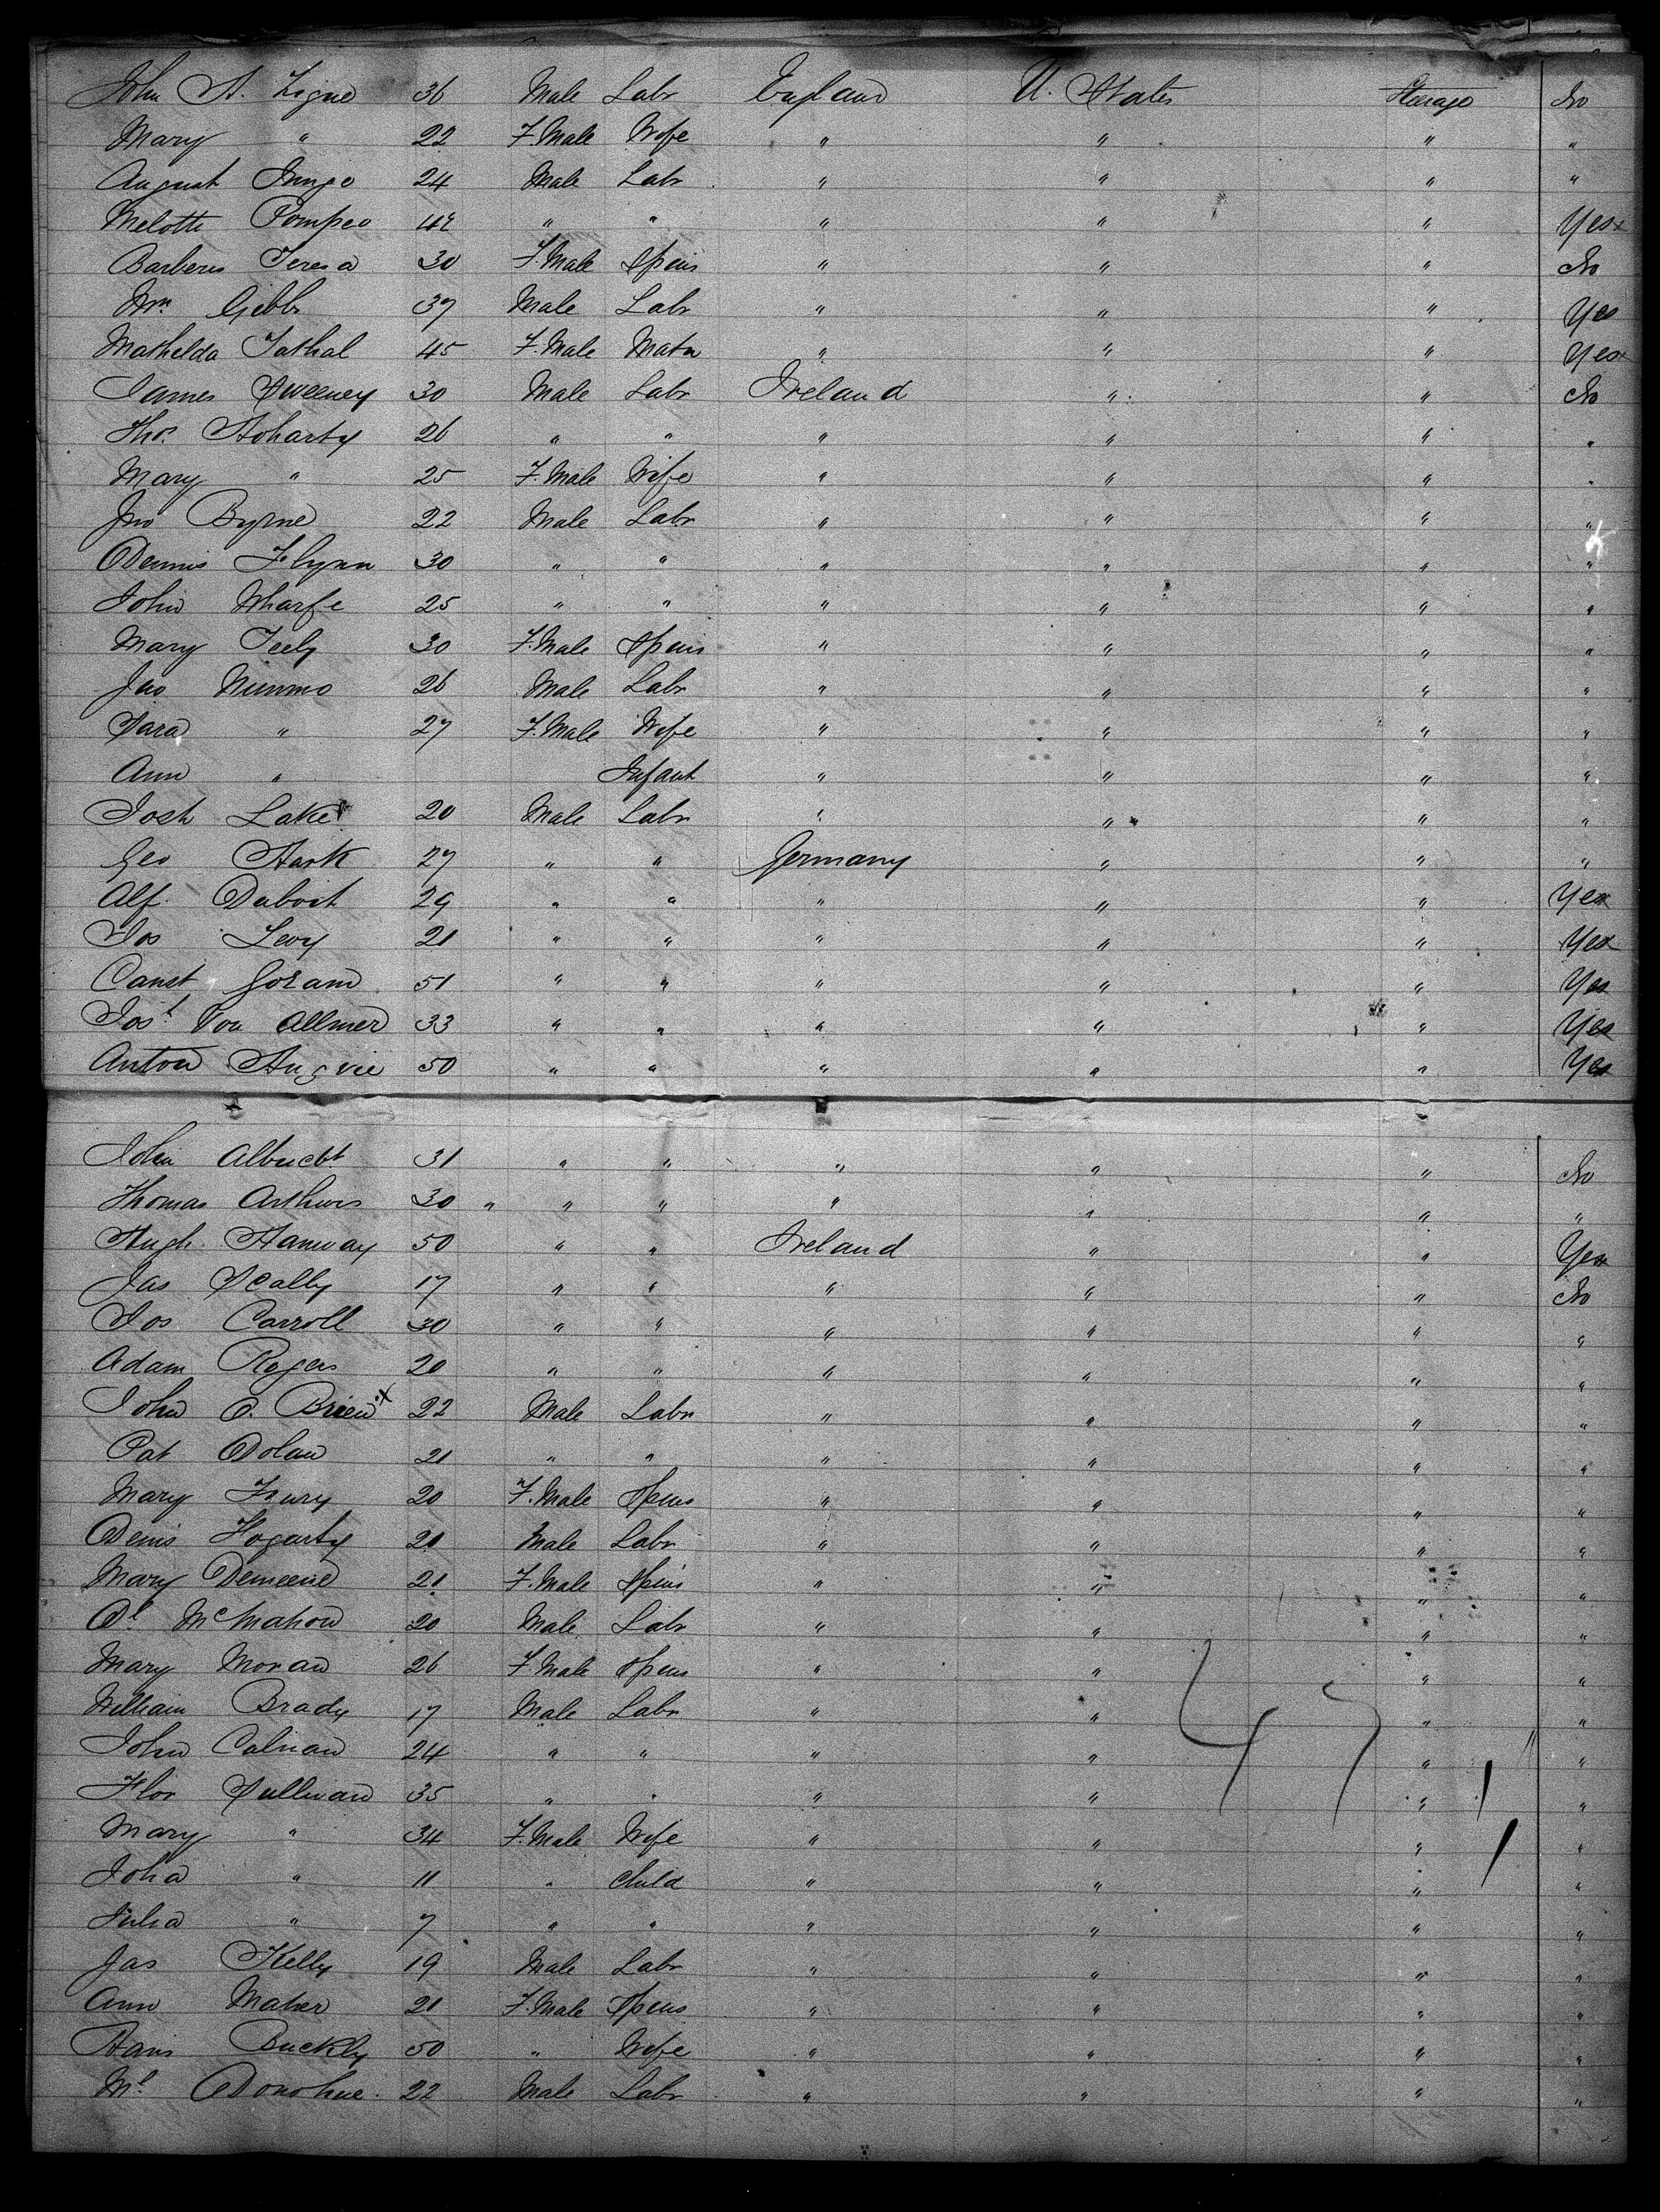 John A. 36 Male Labr England U. States Steerage No
Mary " 22 F. Male Wife " " " "
August 24 Male Labr " " " "
Melotti Pompeo 42 " " " " " Yes
Barberis Teresa 30 F. Male Spins " " " No
Wm. Gibbs 37 Male Labr " " " Yes
Mathelda Tathal 45 F. Male Matn " " " Yes
James Sweeney 30 Male Labr Ireland " " No
Thos. 26 " " " " " "
Mary " 25 F. Male Wife " " " "
Jno Byrne 22 Male Labr " " " "
Dennis Flynn 30 " " " " " "
John Wharfe 25 " " " " " "
Mary Feely 30 F. Male Spins " " " "
Jno Nimmo 26 Male Labr " " " "
Sara " 27 F. Male Wife " " " "
Ann " Infant " " " "
Josh Lake 20 Male Labr " " " "
Geo Stark 27 " " Germany " " "
Alf. Duboit 29 " " " " " Yes
Jos Levy 21 " " " " " Yes
Const 51 " " " " " Yes
Josh. Von Allmer 33 " " " " " Yes
Anton 50 " " " " " Yes
John Albrecht 31 " " " " " No
Thomas Arthurs 30 " " " " " " "
Hugh Hanway 50 " " Ireland " " Yes
Jas Scally 17 " " " " " No
Jos Carroll 30 " " " " " "
Adam Rogers 20 " " " " " "
John O. Brien x 22 Male Labr " " " "
Pat Dolan 21 " " " " " "
Mary Fury 20 F. Male Spins " " " "
Denis Hogarty 21 Male Labr " " " "
Mary 21 F. Male Spins " " " "
Dl McMahon 20 Male Labr " " " "
Mary Moran 26 F. Male Spins " " " "
William Brady 17 Male Labr " " " "
John Calnan 24 " " " " " "
Flor Sullivan 35 " " " " " "
Mary " 34 F. Male Wife " " " "
Joha " 11 " Child " " " "
Julia " 7 " " " " " "
Jas Kelly 19 Male Labr " " " "
Ann Maher 21 F. Male Spins " " " "
Buckly 50 " Wife " " " "
Ml Donohue 22 Male Labr " " " "
47